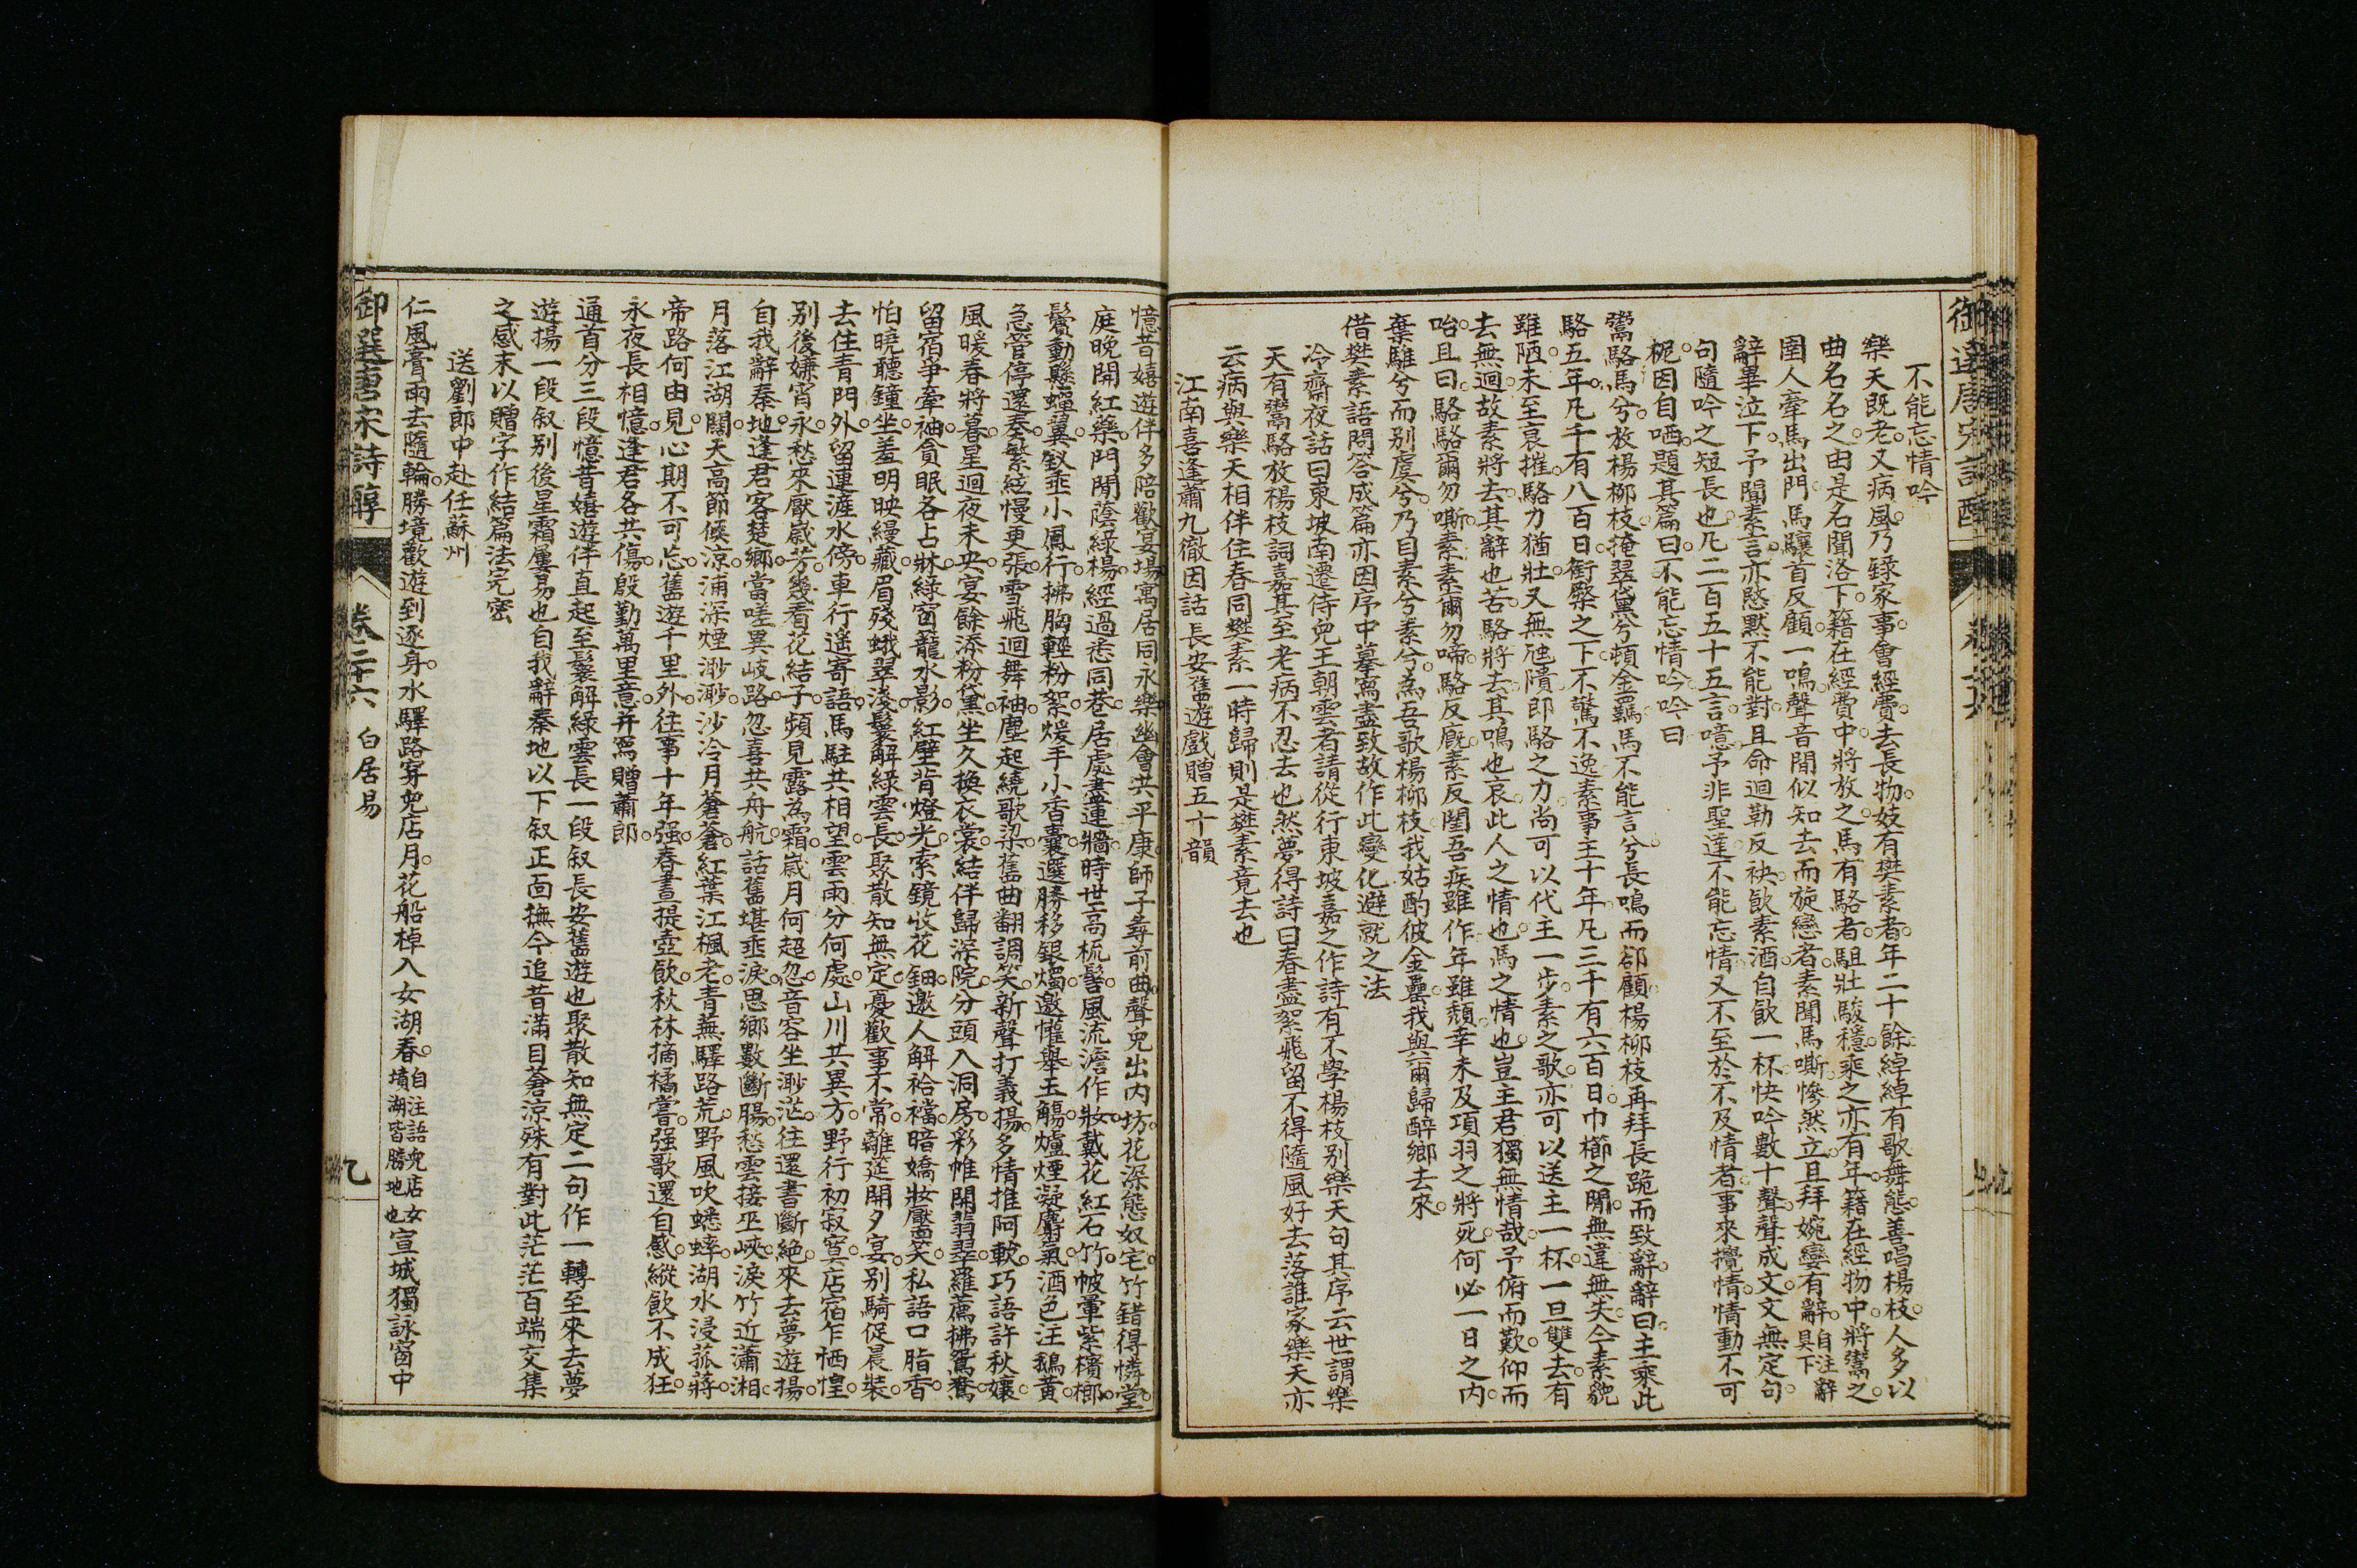 不能忘情吟
樂天既老又病風乃錄家事會經費去長物妓有樊素者年二十餘綽綽有歌舞態善唱楊枝人多以
曲名名之由是名聞洛下籍在經費中將放之馬有駱者駔壯駿穩乘之亦有年籍在經物中將鬻之
圉人牽馬出門馬驤首反顧一鳴聲音間似知去而旋戀者素聞馬嘶慘然立且拜婉孌有辭自注辭具下
辭畢泣下予聞素言亦愍默不能對且命迴勒反袂飲素酒自飲一杯快吟數十聲聲成文文無定句
句隨吟之短長也凡二百五十五言噫予非聖達不能忘情又不至於不及情者事來攪情情動不可
柅因自哂題其篇曰不能忘情吟吟曰
鬻駱馬兮放楊柳枝掩翠黛兮頓金羈馬不能言兮長鳴而卻顧楊柳枝再拜長跪而致辭辭曰主乘此
駱五年凡千有八百日銜橜之下不驚不逸素事主十年凡三千有六百日巾櫛之間無違無失今素貌
雖陋未至衰摧駱力猶壯又無虺隤即駱之力尚可以代主一步素之歌亦可以送主一杯一旦雙去有
去無迴故素將去其辭也苦駱將去其鳴也哀此人之情也馬之情也豈主君獨無情哉予俯而歎仰而
咍且曰駱駱爾勿嘶素素爾勿啼駱反廄素反閨吾疾雖作年雖頹幸未及項羽之將死何必一日之内
棄騅兮而别虞兮乃目素兮素兮為吾歌楊柳枝我姑酌彼金罍我與爾歸醉鄉去來
借樊素語問答成篇亦因序中摹寫盡致故作此變化避就之法
冷齋夜話曰東坡南遷侍兒王朝雲者請從行東坡嘉之作詩有不學楊枝别樂天句其序云世謂樂
天有鬻駱放楊枝詞嘉其至老病不忍去也然夢得詩曰春盡絮飛留不得隨風好去落誰家樂天亦
云病與樂天相伴住春同樊素一時歸則是樊素竟去也
江南喜逢蕭九徹因話長安舊遊戲贈五十韻
憶昔嬉遊伴多陪歡宴場寓居同永樂幽會共平康師子尋前曲聲兒出内坊花深態奴宅竹錯得憐堂
庭晚開紅藥門閒蔭綠楊經過悉同巷居處盡連牆時世高梳髻風流澹作妝戴花紅石竹帔暈紫檳榔
鬢動懸蟬翼釵垂小鳳行拂胸輕粉絮煖手小香囊選勝移銀燭邀懽舉玉觴爐煙凝麝氣酒色注鵝黃
急管停還奏繁絃慢更張雪飛迴舞袖塵起繞歌梁舊曲翻調笑新聲打義揚多情推阿軟巧語許秋孃
風暖春將暮星迴夜未央宴餘添粉黛坐久換衣裳結伴歸深院分頭入洞房彩帷開翡翠羅薦拂鴛鴦
留宿爭牽袖貪眠各占牀綠窗籠水影紅壁背燈光索鏡收花鈿邀人解袷襠暗嬌妝靨笑私語口脂香
怕曉聽鐘坐羞明映縵藏眉殘蛾翠淺鬟解綠雲長聚散知無定憂歡事不常離筵開夕宴别騎促晨裝
去住青門外留連滻水傍車行遙寄語馬駐共相望雲雨分何處山川共異方野行初寂寞店宿乍恓惶
别後嫌宵永愁來厭歲芳幾看花結子頻見露為霜歲月何超忽音容坐渺茫往還書斷絶來去夢遊揚
自我辭秦地逢君客楚鄉當嗟異岐路忽喜共舟航話舊堪垂淚思鄉數斷腸愁雲接巫峽淚竹近瀟湘
月落江湖闊天高節候涼浦深煙渺渺沙冷月蒼蒼紅葉江楓老青蕪驛路荒野風吹蟋蟀湖水浸菰蔣
帝路何由見心期不可忘舊遊千里外往事十年强春晝提壺飲秋林摘橘嘗强歌還自感縱飲不成狂
永夜長相憶逢君各共傷殷勤萬里意并寫贈蕭郎
通首分三段憶昔嬉遊伴直起至鬟解綠雲長一段叙長安舊遊也聚散知無定二句作一轉至來去夢
遊揚一段叙别後星霜屢易也自我辭秦地以下叙正面撫今追昔滿目蒼涼殊有對此茫茫百端交集
之感末以贈字作結篇法完密
送劉郎中赴任蘇州
仁風膏雨去隨輪勝境歡遊到逐身水驛路穿兒店月花船棹入女湖春自注語兒店女墳湖皆勝地也宣城獨詠窗中
御選唐宋詩醇 卷二十六 白居易 九